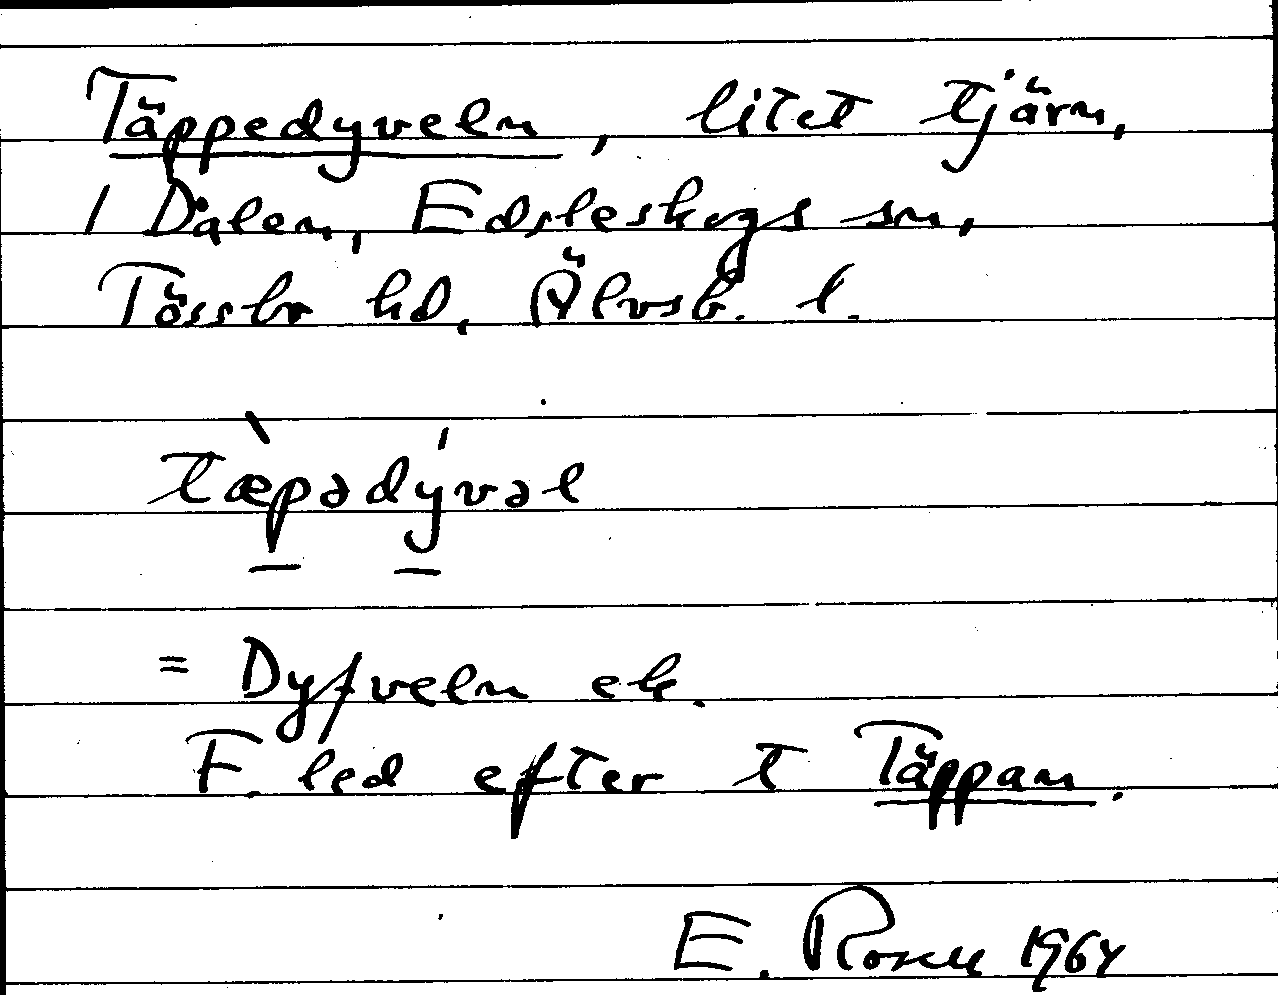 Täppedyveln, litet tjärn,
i Dalen, Edsleskogs sn,
Tössbo hd, Älvsb. l.
tæ̀pədývəl
= Dyfveln ek.
F. led efter t Täppan.
E. 1964